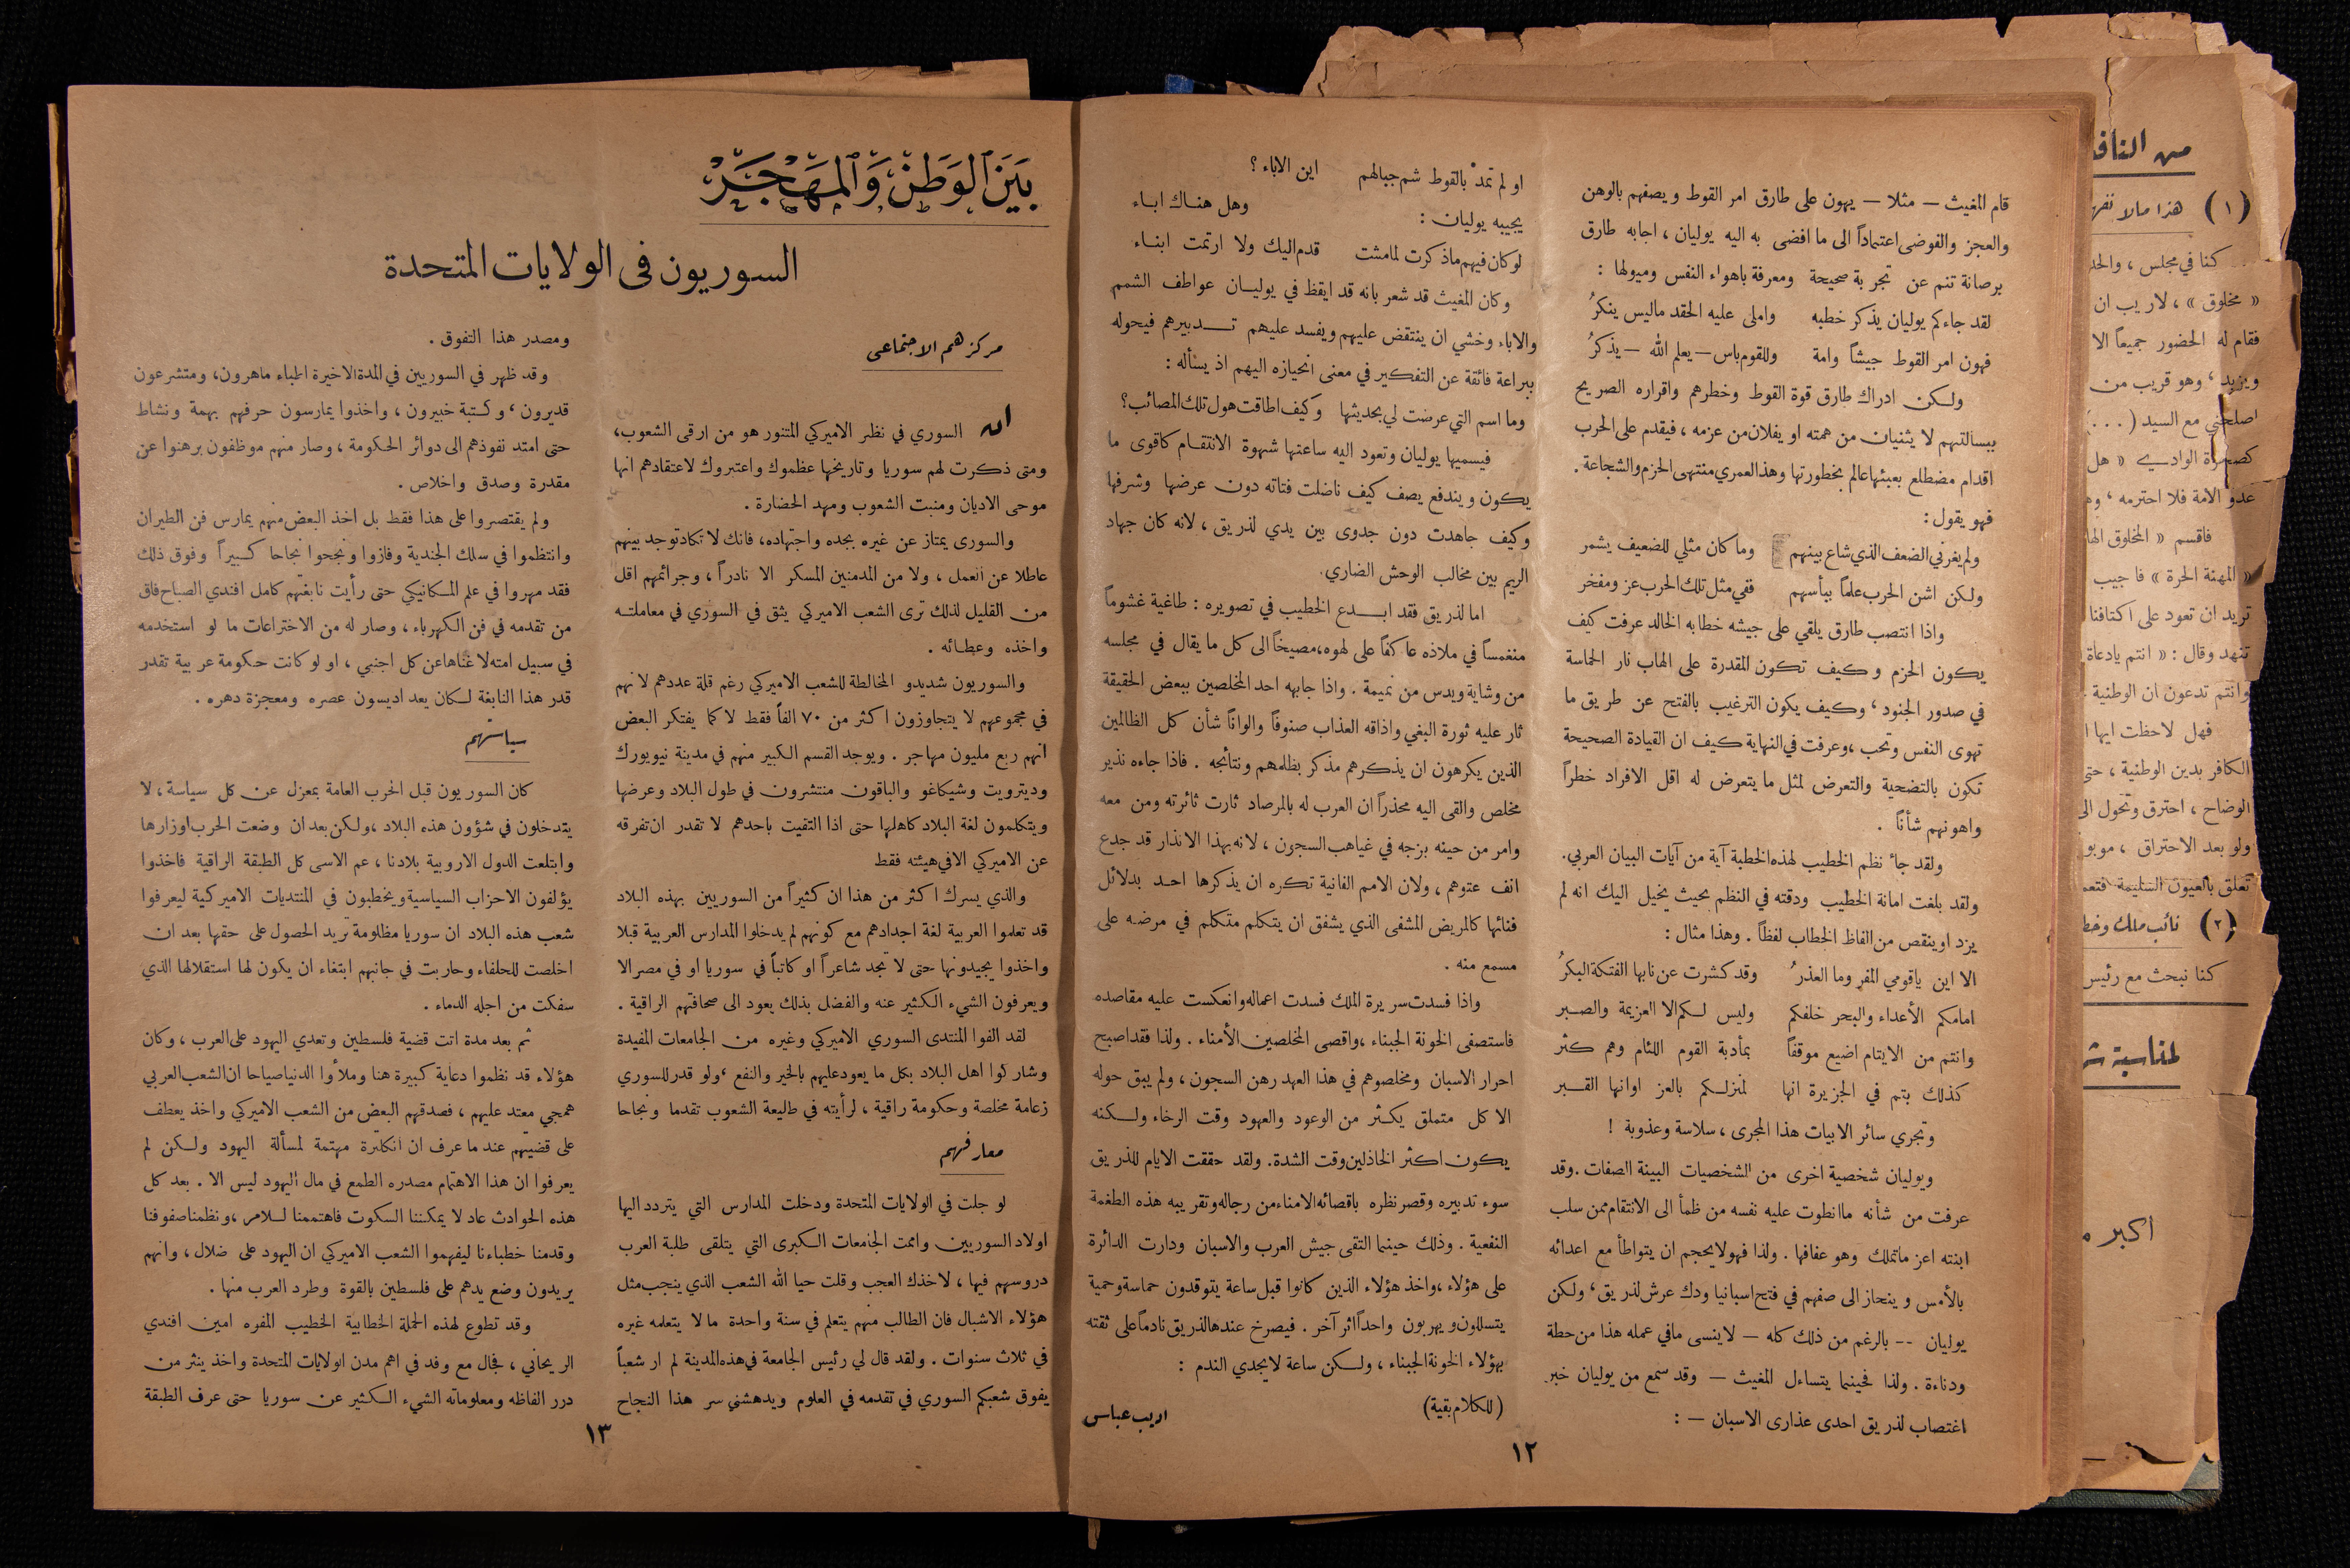 قام المغيث — مثلا — يهون على طارق امر القوط ويصفهم بالوهن
والعجز والفوضى اعتماداً الى ما افضى به اليه يوليان ، اجابه طارق
برصانة تنم عن تجربة صحيحة ومعرفة باهواء النفس وميولها :
لقد جاءكم يوليان يذكر خطبه واملى عليه الحقد ماليس ينكرُ
فهون امر القوط جيشاً وامة وللقوم باس — يعلم الله — يذكرُ
ولكن ادراك طارق قوة القوط وخطرهم واقراره الصريح
ببسالتهم لا يثنيان من همته او يفلان من عزمه ، فيقدم على الحرب
اقدام مضطلع بعبئها عالم بخطورتها وهذا لعمري منتهى الحزم والشجاعة .
فهو يقول :
ولم يغرني الضعف الذي شاع بينهم وما كان مثلي للضعيف يشمر
ولكن اشن الحرب علماً ببأسهم ففي مثل تلك الحرب عز ومفخر
واذا انتصب طارق يلقي على جيشه خطابه الخالد عرفت كيف
يكون الحزم وكيف تكون المقدرة على الهاب نار الحماسة
في صدور الجنود ، وكيف يكون الترغيب بالفتح عن طريق ما
تهوى النفس وتحب ، وعرفت في النهاية كيف ان القيادة الصحيحة
تكون بالتضحية والتعرض لمثل ما يتعرض له اقل الافراد خطراً
واهونهم شأناً .
ولقد جاءَ نظم الخطيب لهذه الخطبة آية من آيات البيان العربي.
ولقد بلغت امانة الخطيب ودقته في النظم بحيث يخيل اليك انه لم
يزد او ينقص من الفاظ الخطاب لفظاً . وهذا مثال :
الا اين ياقومي المفر وما العذرُ وقد كشرت عن نابها الفتكة البكرُ
امامكم الأعداء والبحر خلفكم وليس لكم الا العزيمة والصبر
وانتم من الايتام اضيع موقفاً بمأدبة القوم اللئام وهم كثر
كذلك بتم في الجزيرة انها لمنزلكم بالعز اوانها القبر
وتجري سائر الابيات هذا المجرى ، سلاسة وعذوبة !
ويوليان شخصية اخرى من الشخصيات البينة الصفات . وقد
عرفت من شأنه ما انطوت عليه نفسه من ظمأ الى الانتقام ممن سلب
ابنته اعز ماتملك وهو عفافها . ولذا فهو لايحجم ان يتواطأ مع اعدائه
بالأمس وينحاز الى صفهم في فتح اسبانيا ودك عرش لذريق ، ولكن
يوليان -- بالرغم من ذلك كله — لاينسى مافي عمله هذا من حطة
ودناءة . ولذا فحينما يتساءل المغيث — وقد سمع من يوليان خبر
اغتصاب لذريق احدى عذارى الاسبان — :
او لم تمذ بالقوط شم جبالهم اين الاباء ؟
يجيبه يوليان : وهل هناك اباء
لو كان فيهم ماذكرت لما مشت قدم اليك ولا ارتمت ابناء
وكان المغيث قد شعر بانه قد ايقظ في يوليان عواطف الشمم
والاباء وخشي ان ينتقض عليهم ويفسد عليهم تدبيرهم فيحوله
ببراعة فائقة عن التفكير في معنى انحيازه اليهم اذ يسأله :
وما اسم التي عرضت لي بحديثها وكيف اطاقت هول تلك المصائب ؟
فيسميها يوليان وتعود اليه ساعتها شهوة الانتقام كاقوى ما
يكون ويندفع يصف كيف ناضلت فتاته دون عرضها وشرفها
وكيف جاهدت دون جدوى بين يدي لذريق ، لانه كان جهاد
الريم بين مخالب الوحش الضاري.
اما لذريق فقد ابدع الخطيب في تصويره : طاغية غشوماً
منغمساً في ملاذه عاكفاً على لهوه ، مصيخاً الى كل ما يقال في مجلسه
من وشاية ويدس من نميمة . واذا جابهه احد المخلصين ببعض الحقيقة
ثار عليه ثورة البغي واذاقه العذاب صنوفاً والواناً شأن كل الظالمين
الذين يكرهون ان يذكرهم مذكر بظلمهم ونتائجه . فاذا جاءه نذير
مخلص والقى اليه محذراً ان العرب له بالمرصاد ثارت ثائرته ومن معه
وامر من حينه بزجه في غياهب السجون ، لانه بهذا الانذار قد جدع
انف عتوهم ، ولان الامم الفانية تكره ان يذكرها احد بدلائل
فنائها كالمريض المشفى الذي يشفق ان يتكلم متكلم في مرضه على
مسمع منه .
واذا فسدت سريرة الملك فسدت اعماله وانعكست عليه مقاصده
فاستصفى الخونة الجبناء ، واقصى المخلصين الأمناء . ولذا فقد اصبح
احرار الاسبان ومخلصوهم في هذا العهد رهن السجون ، ولم يبق حوله
الا كل متملق يكثر من الوعود والعهود وقت الرخاء ولكنه
يكون اكثر الخاذلين وقت الشدة. ولقد حققت الايام للذريق
سوء تدبيره وقصر نظره باقصائه الامناء من رجاله وتقريبه هذه الطغمة
النفعية . وذلك حينما التقى جيش العرب والاسبان ودارت الدائرة
على هؤلاء ، واخذ هؤلاء الذين كانوا قبل ساعة يتوقدون حماسة وحمية
يتسللون ويهربون واحداً اثر آخر . فيصرخ عندها لذريق نادماً على ثقته
بهؤلاء الخونة الجبناء ، ولكن ساعة لايجدي الندم :
(للكلام بقية)
اديب عباسي
١٢
بَيْنَ الوَطَنْ وَالمَهْجَرْ
السوريون فى الولايات المتحدة
مركزهم الاجتماعى
ان السوري في نظر الاميركي المتنور هو من ارقى الشعوب،
ومتى ذكرت لهم سوريا وتاريخها عظموك واعتبروك لاعتقادهم انها
موحى الاديان ومنبت الشعوب ومهد الحضارة .
والسورى يمتاز عن غيره بجده واجتهاده، فانك لا تكاد توجد بينهم
عاطلا عن العمل ، ولا من المدمنين المسكر الا نادراً ، وجرائمهم اقل
من القليل لذلك ترى الشعب الاميركي يثق في السوري في معاملته
واخذه وعطائه .
والسوريون شديدو المخالطة للشعب الاميركي رغم قلة عددهم لانهم
في مجموعهم لا يتجاوزون اكثر من ٧٠ الفاً فقط لا كما يفتكر البعض
انهم ربع مليون مهاجر . ويوجد القسم الكبير منهم في مدينة نيويورك
وديترويت وشيكاغو والباقون منتشرون في طول البلاد وعرضها
ويتكلمون لغة البلاد كاهلها حتى اذا التقيت باحدهم لا تقدر ان تفرقه
عن الاميركي الا في هيئته فقط
والذي يسرك اكثر من هذا ان كثيراً من السوريين بهذه البلاد
قد تعلموا العربية لغة اجدادهم مع كونهم لم يدخلوا المدارس العربية قبلا
واخذوا يجيدونها حتى لا تجد شاعراً او كاتباً في سوريا او في مصر الا
ويعرفون الشيء الكثير عنه والفضل بذلك يعود الى صحافتهم الراقية .
لقد الفوا المنتدى السوري الاميركي وغيره من الجامعات المفيدة
وشاركوا اهل البلاد بكل ما يعود عليهم بالخير والنفع ، ولو قدر للسوري
زعامة مخلصة وحكومة راقية ، لرأيته في طليعة الشعوب تقدما ونجاحا
معارفهم
لو جلت في الولايات المتحدة ودخلت المدارس التي يتردد اليها
اولاد السوريين واممت الجامعات الكبرى التي يتلقى طلبة العرب
دروسهم فيها ، لاخذك العجب وقلت حيا الله الشعب الذي ينجب مثل
هؤلاء الاشبال فان الطالب منهم يتعلم في سنة واحدة ما لا يتعلمه غيره
في ثلاث سنوات . ولقد قال لي رئيس الجامعة في هذه المدينة لم ار شعباً
يفوق شعبكم السوري في تقدمه في العلوم ويدهشني سر هذا النجاح
ومصدر هذا التفوق .
وقد ظهر في السوريين في المدة الاخيرة اطباء ماهرون، ومتشرعون
قديرون ، وكتبة خبيرون ، واخذوا يمارسون حرفهم بهمة ونشاط
حتى امتد نفوذهم الى دوائر الحكومة ، وصار منهم موظفون برهنوا عن
مقدرة وصدق واخلاص .
ولم يقتصروا على هذا فقط بل اخذ البعض منهم يمارس فن الطيران
وانتظموا في سلك الجندية وفازوا ونجحوا نجاحا كبيراً وفوق ذلك
فقد مهروا في علم المكانيكي حتى رأيت نابغتهم كامل افندي الصباح فاق
من تقدمه في فن الكهرباء ، وصار له من الاختراعات ما لو استخدمه
في سبيل امته لاغناها عن كل اجنبي ، او لو كانت حكومة عربية تقدر
قدر هذا النابغة لكان يعد اديسون عصره ومعجزة دهره .
سياستهم
كان السوريون قبل الحرب العامة بمعزل عن كل سياسة ، لا
يتدخلون في شؤون هذه البلاد ، ولكن بعد ان وضعت الحرب اوزارها
وابتلعت الدول الاروبية بلادنا ، عم الاسى كل الطبقة الراقية فاخذوا
يؤلفون الاحزاب السياسية ويخطبون في المنتديات الاميركية ليعرفوا
شعب هذه البلاد ان سوريا مظلومة تريد الحصول على حقها بعد ان
اخلصت للحلفاء وحاربت في جانبهم ابتغاء ان يكون لها استقلالها الذي
سفكت من اجله الدماء .
ثم بعد مدة اتت قضية فلسطين وتعدي اليهود على العرب ، وكان
هؤلاء قد نظموا دعاية كبيرة هنا وملأوا الدنيا صياحا ان الشعب العربي
همجي معتد عليهم ، فصدقهم البعض من الشعب الاميركي واخذ يعطف
على قضيتهم عند ما عرف ان انكلترة مهتمة لمسألة اليهود ولكن لم
يعرفوا ان هذا الاهتمام مصدره الطمع في مال اليهود ليس الا . بعد كل
هذه الحوادث عاد لا يمكننا السكوت فاهتممنا للامر ، ونظمنا صفوفنا
وقدمنا خطباءنا ليفهموا الشعب الاميركي ان اليهود على ضلال ، وانهم
يريدون وضع يدهم على فلسطين بالقوة وطرد العرب منها .
وقد تطوع لهذه الحملة الخطابية الخطيب المفوه امين افندي
الريحاني ، فجال مع وفد في اهم مدن الولايات المتحدة واخذ ينثر من
درر الفاظه ومعلوماته الشيء الكثير عن سوريا حتى عرف الطبقة
١٣
من النافذ
(١) هذا مالا نفه
كنا في مجلس ، والحد
« مخلوق » ، لاريب ان
فقام له الحضور جميعاً الا
ويزيد ، وهو قريب من
اصلحني مع السيد (...)
كصخرة الوادي « هل
عدو الامة فلا احترمه ، وه
فاقسم « المخلوق الها
« المهنة الحرة » فاجيب
تريد ان تعود على اكتافنا
تنهد وقال : « انتم يادعاة
وانتم تدعون ان الوطنية
فهل لاحظت ايها ا
الكافر بدين الوطنية ، حتى
الوضاح ، احترق وتحول الى
ولو بعد الاحتراق ، موبو
تعلق بالعيون السليمة فتعم
(٢) نائب ملك وخط
كنا نبحث مع رئيس
لمناسبة ش
اكبر م